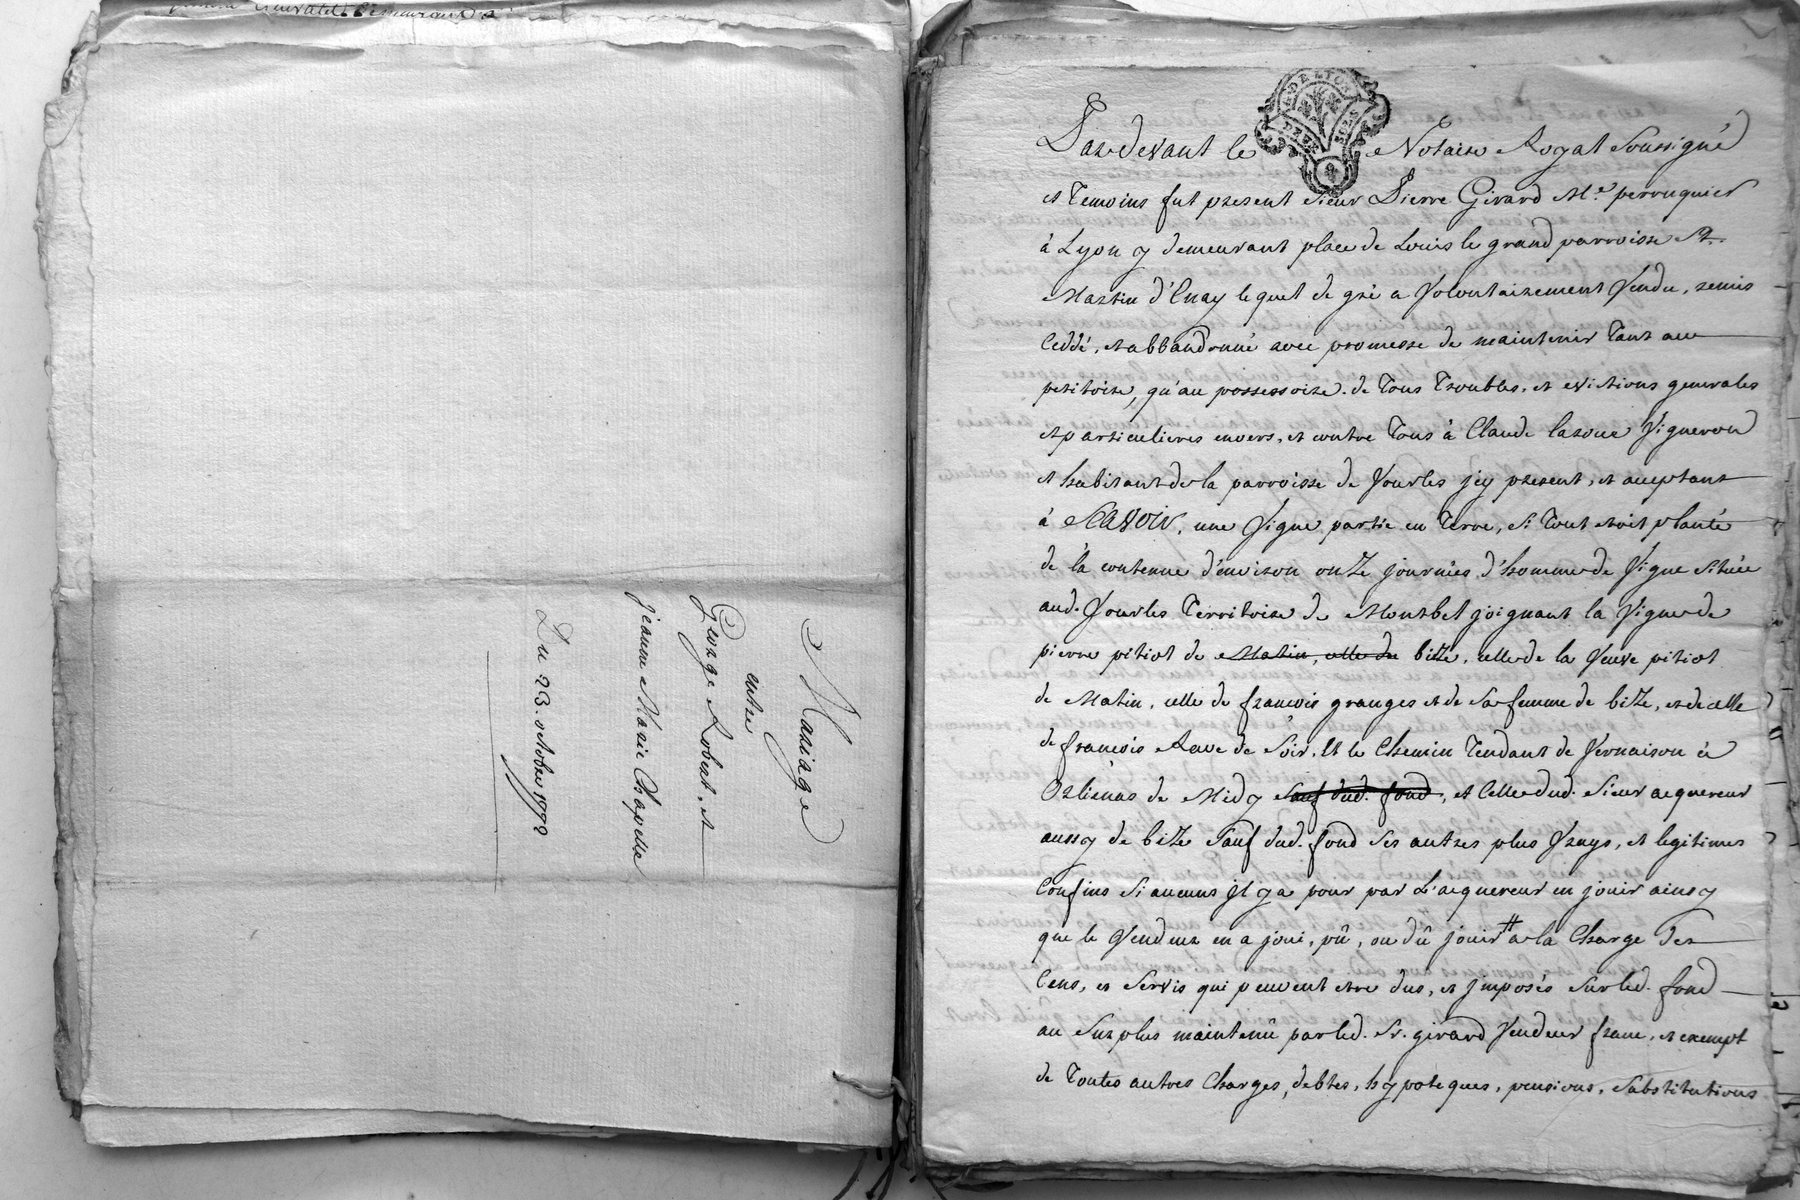 Mariage
entre
George Robert, et
jeanne Marie Chapelle
Du 23. octobre 1772
G. DE LYON
DEUX SOLS
Pardevant le Notaire Royal Soussigné
et Temoins fut present Sieur Pierre Girard Me. perruquier
à Lyon y demeurant place de Louis le grand parroisse St.
Martin d'Enay lequel de gré a Volontairement Vendu, remis
Ceddé, et abbandonné avec promesse de maintenir Tant au
petitoire, qu'au possessoire. de Tous Troubles, et evictions generales
et particulieres envers, et contre Tous à Claude Vigneron
et habitant de la parroisse de Vourles jcy present, et acceptant
à SCAVOIR, une Vigne partie en Terre, Si Tout etoit planté
de la contenue d'environ onze journées d'homme de Vigne Située
aud. Vourles Territoire de Montbel joignant la Vigne de
pierre pitiot de Matin, celle de bize, celle de la Veuve pitiot
de Matin, celle de françois granges et de Sa femme de bize, et de celle
de françois Rave de Soir, Et le Chemin Tendant de Vernaison à
Orlienas de Midy Sauf dud. fond, et Celle dud. Sieur acquereur
aussy de bize Sauf dud. fond Ses autres plus Vrays, et legitimes
Confins Si aucuns jl y a pour par L'acquereur en jouir ainsy
que le Vendeur en a joui, pû, ou dû jouir # a la Charge des
Cens, et Servis qui peuvent etre dus, et jmposés Sur led. fond
au Surplus maintenû par led. Sr. girard Vendeur franc, et exempt
de Toutes autres Charges, debtes, hypoteques, pensions, Substitutions